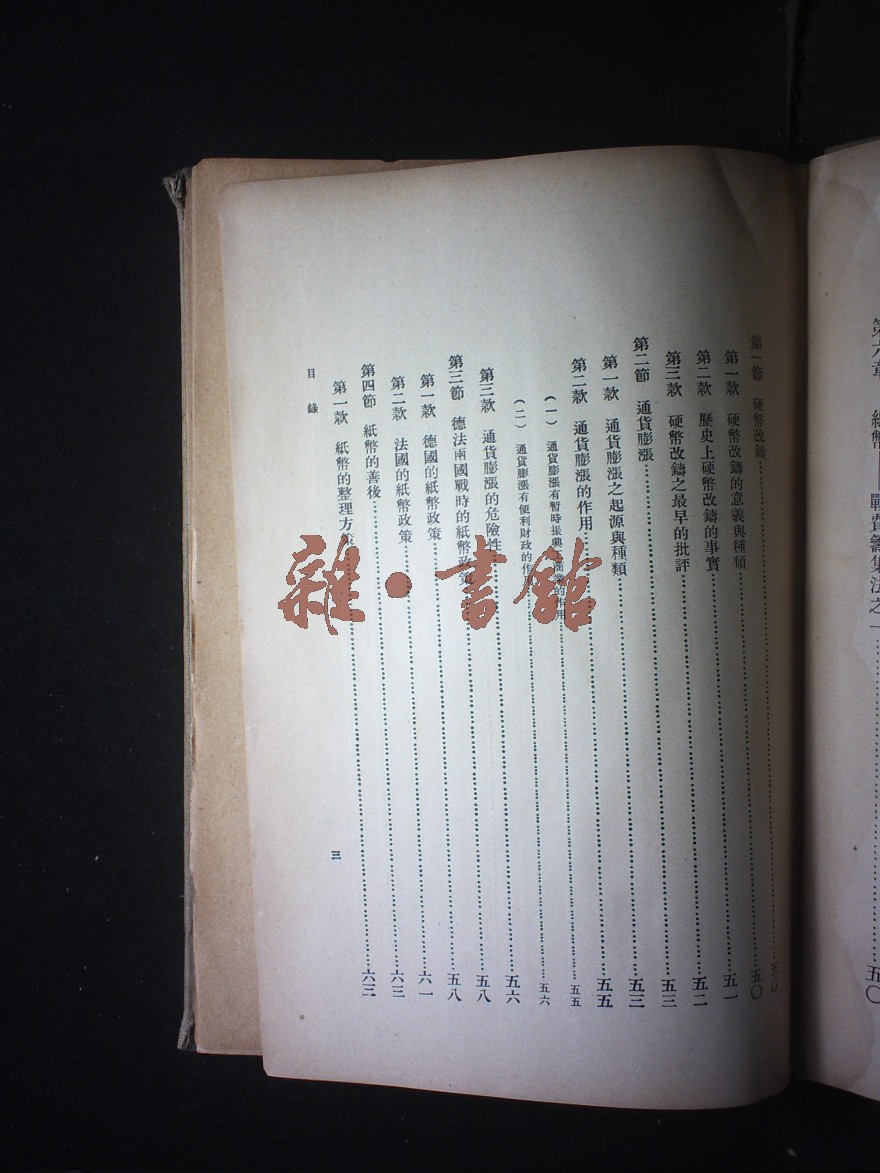 第六章 紙幣——戰費籌集法之一……五〇
第一節 硬幣改鑄……五〇
第一款 硬幣改鑄的意義與種類……五〇
第二款 歷史上硬幣改鑄的事實……五一
第三款 硬幣改鑄之最早的批評……五二
第二節 通貨膨漲……五三
第一款 通貨膨漲之起源與種類……五三
第二款 通貨膨漲的作用……五五
(一) 通貨膨漲有暫時振興工商業的作用……五五
(二) 通貨膨漲有便利財政的作用……五六
第三款 通貨膨漲的危險性……五六
第三節 德法兩國戰時的紙幣政策……五八
第一款 德國的紙幣政策……五八
第二款 法國的紙幣政策……六一
第四節 紙幣的善後……六三
第一款 紙幣的整理方策……六三
目錄
三
雜·書館